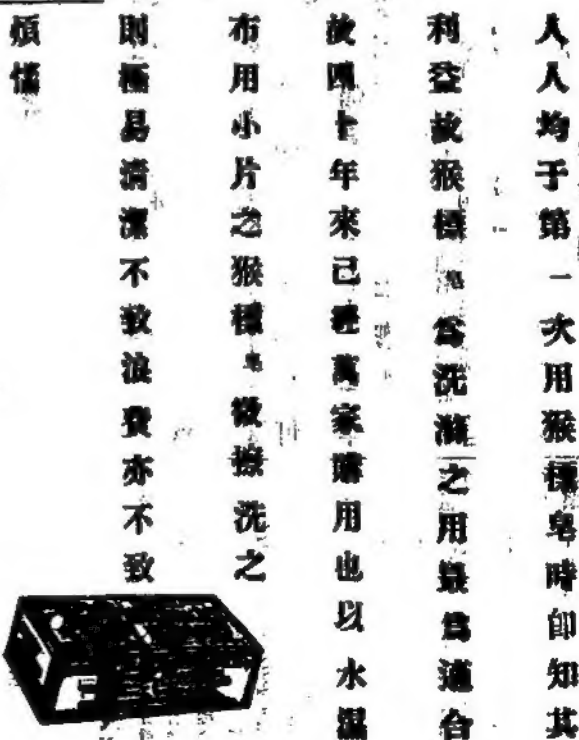 人人均于第一次用猴標皂時卽知其
利益故猴標皂爲洗滌之用最爲適合
故四十年來已經萬家購用也以水濕
布用小片之猴標皂微擦洗之
則極易清潔不致浪費亦不致
煩惱